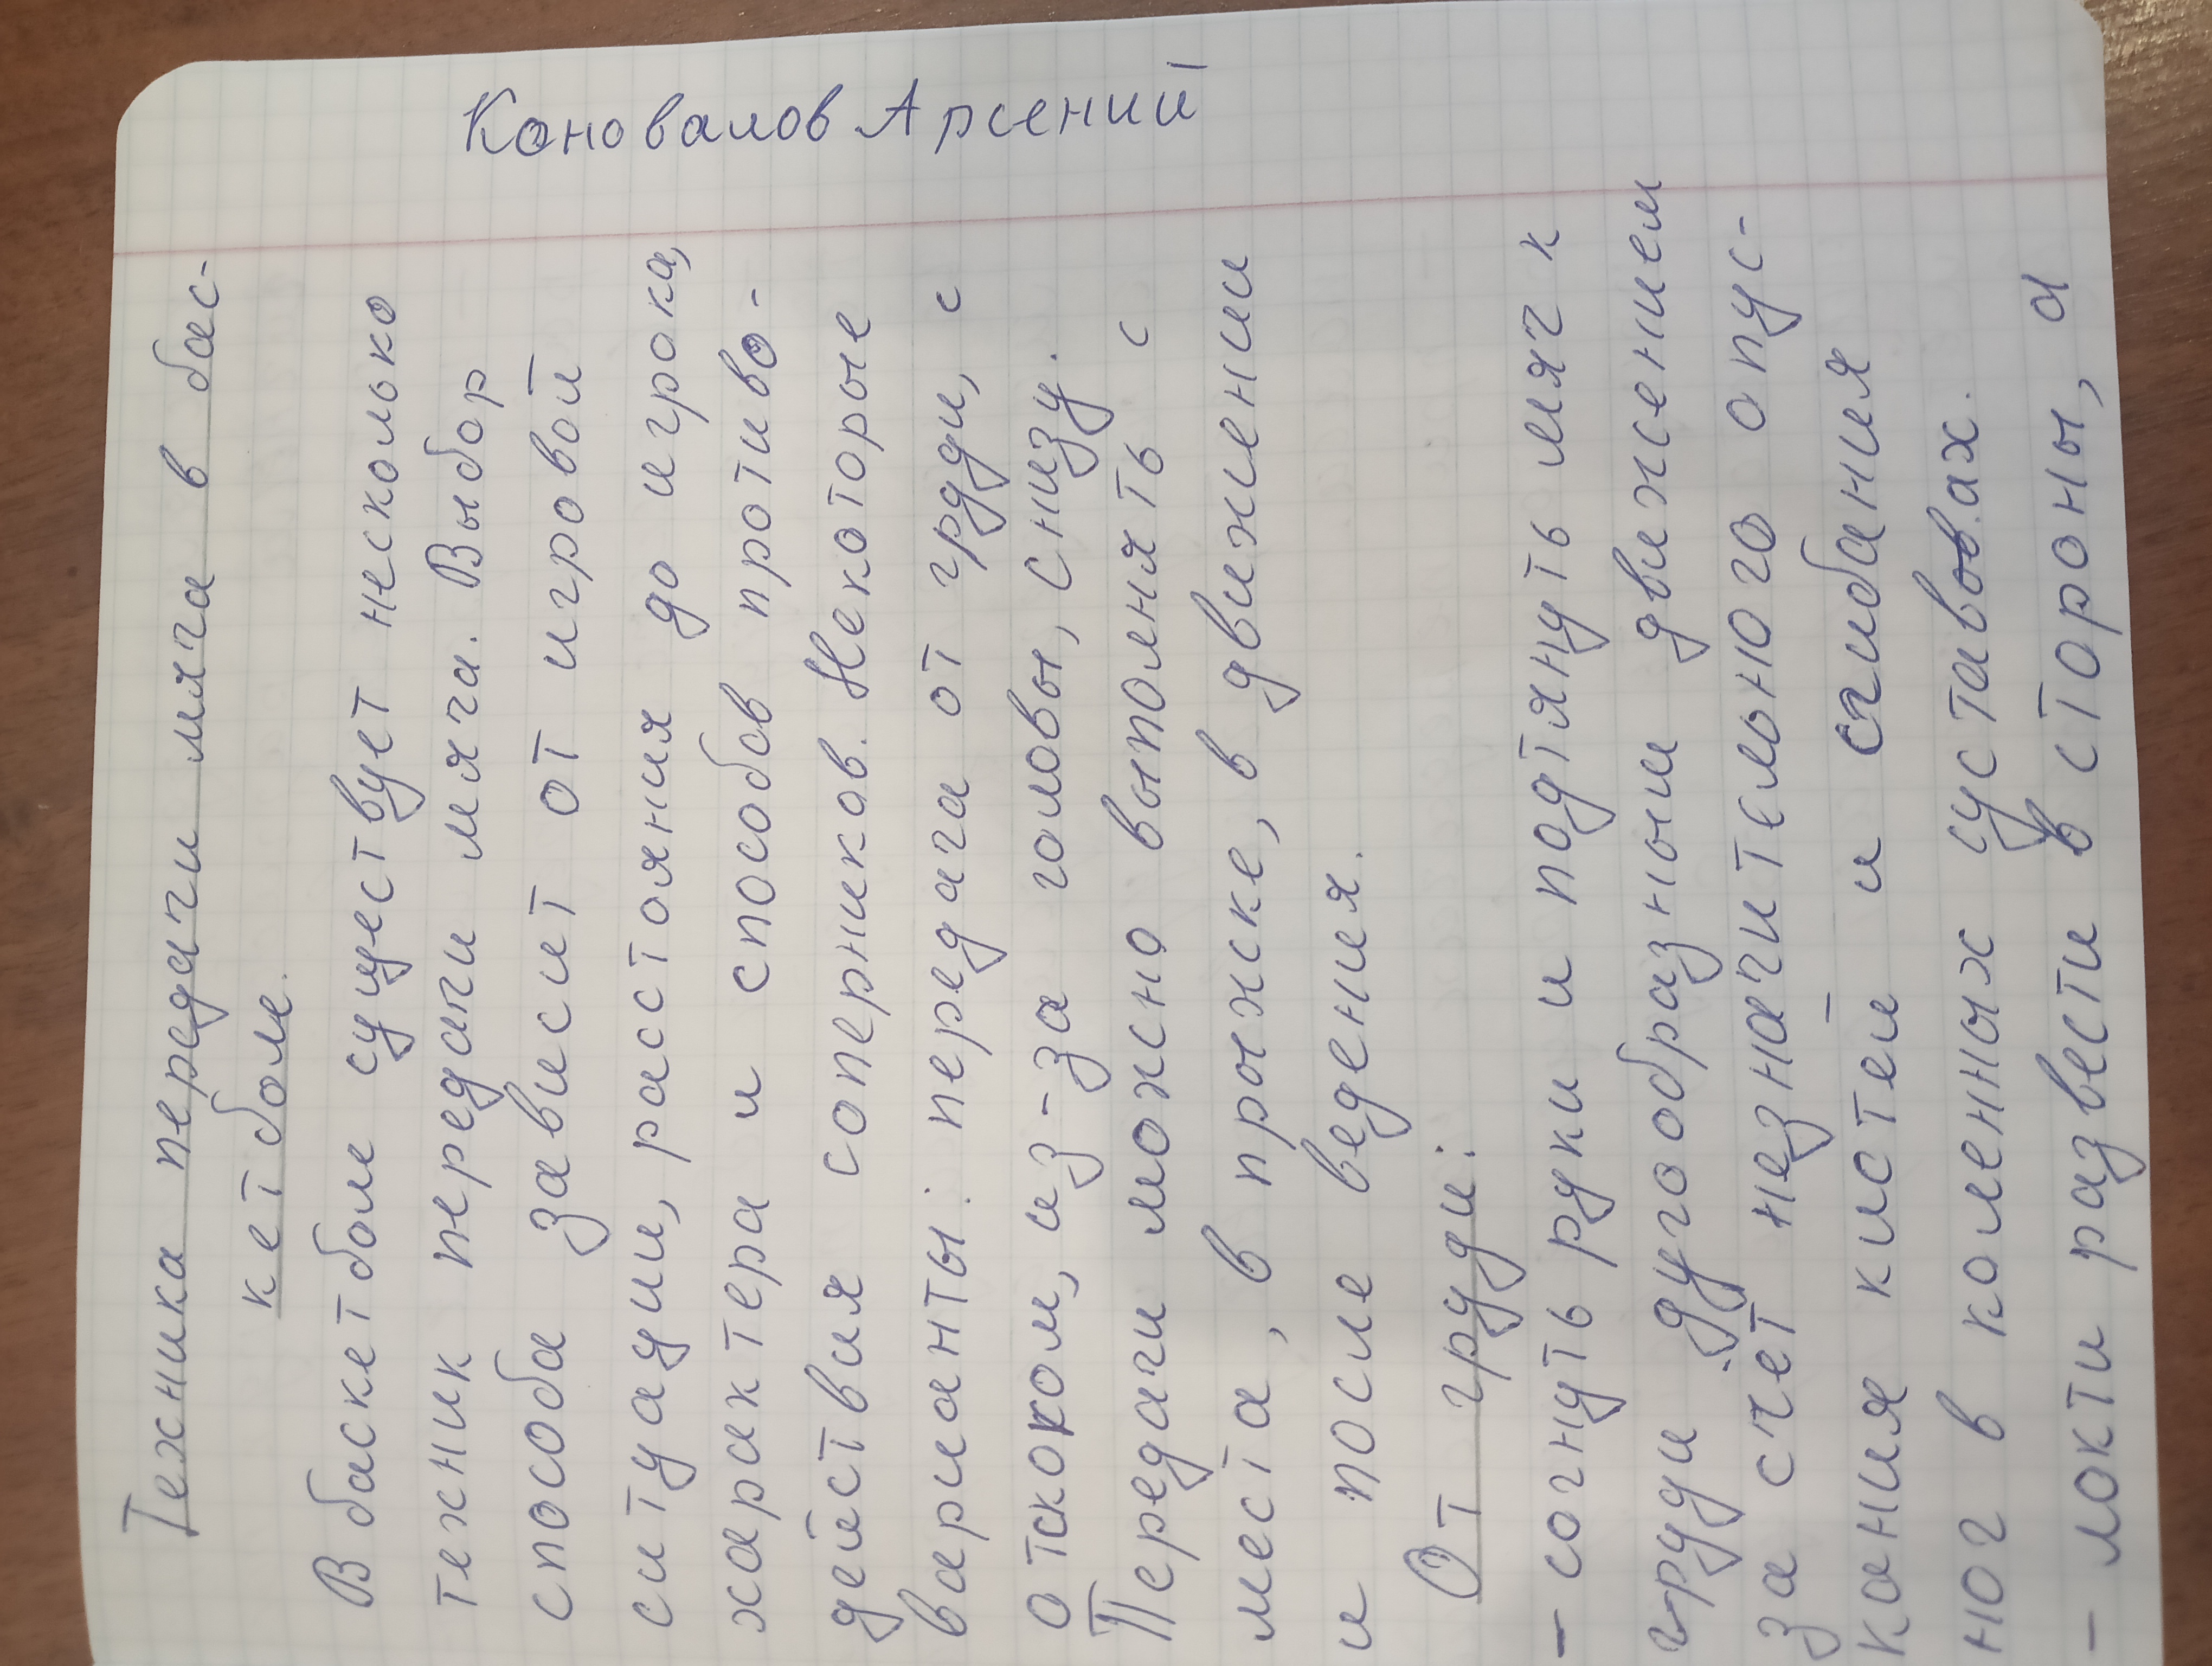 Коновалов Арсений
Техника передачи мяча в бас-
кетболе.
В баскетболе существует несколько
техник передачи мяча. Выбор
способа зависит от игровой
ситуации, расстояния до игрока,
характера и способов противо-
действия соперников. Некоторые
варианты: передача от грди, с
отскоком, из-за головы, снизу.
Передачи можно выполнять с
места, в прыжке, в движении
и после ведения.
От груди:
- согнуть руки и подтянуть мяч к
груди дугообразным движением
за счет незначительного опус-
кания кистей и сгибания
ног в коленных суставах.
- локти развести в стороны, а